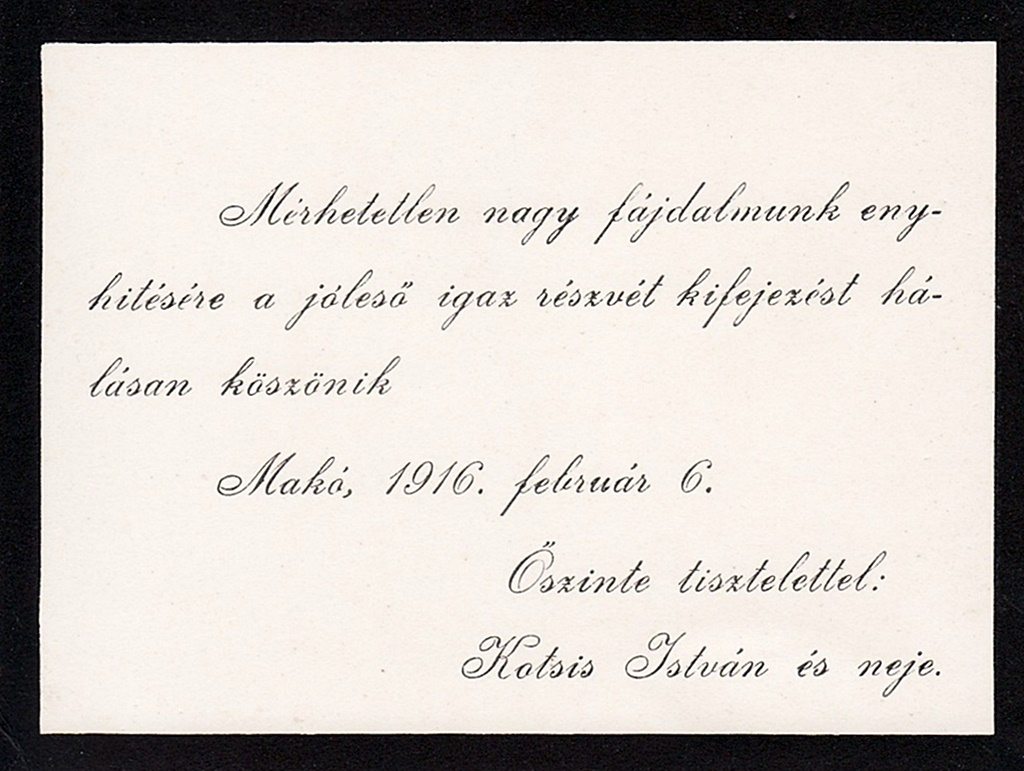 Mérhetetlen nagy fájdalmunk eny-
hitésére a jóleső igaz részvét kifejezést há-
lásan köszönik
Makó, 1916. február 6.
Őszinte tisztelettel:
Kotsis István és neje.